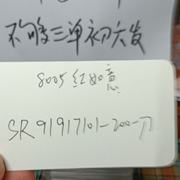 不够三单初大发
8005红如意
SR91917101-200-刀